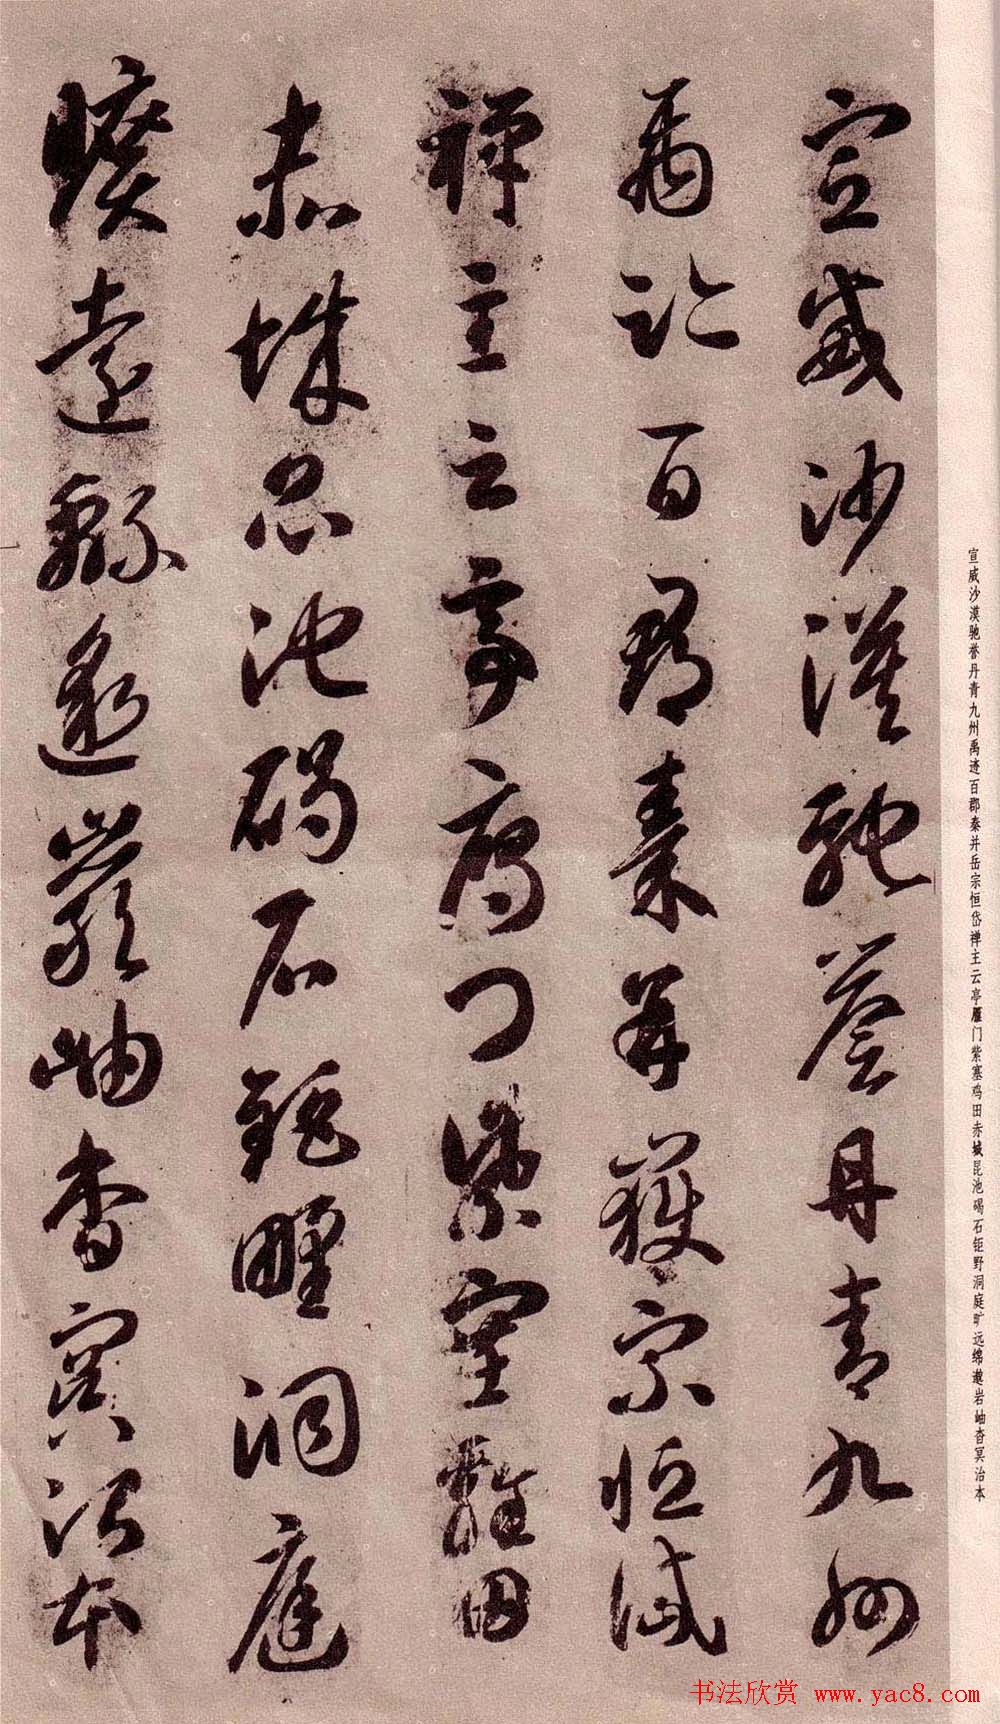 宣威沙漠馳譽丹青九州
禹跡百郡秦并嶽宗恒岱
禪主云亭鴈門紫塞雞田
赤城昆池碣石鉅野洞庭
曠遠綿邈巖岫杳冥治本
宣威沙漠驰誉丹青九州禹迹百郡秦并岳宗恒岱禅主云亭雁门紫塞鸡田赤城昆池碣石钜野洞庭旷远绵邈岩岫杳冥治本
书法欣赏 www.yac8.com